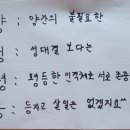 양 : 양간의 불필요한
성 : 성대결 보다는
평 : 평등한 인격체로 서로 존중
등 : 등지고 살일은 없겠지요"